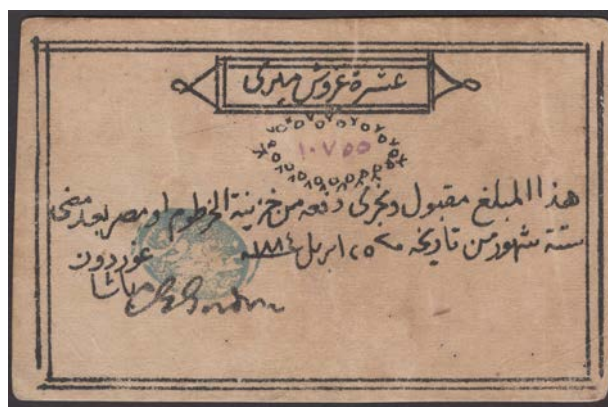 عشرة غروش ميري
١٠٧٥٥
هذا المبلغ مقبول ويجري دفعه من خزينة الخرطوم او مصر بعد مضي
ستة شهور من تاريخه ٢٥ ابريل ١٨٨٤
غوردون
باشا
Gordon